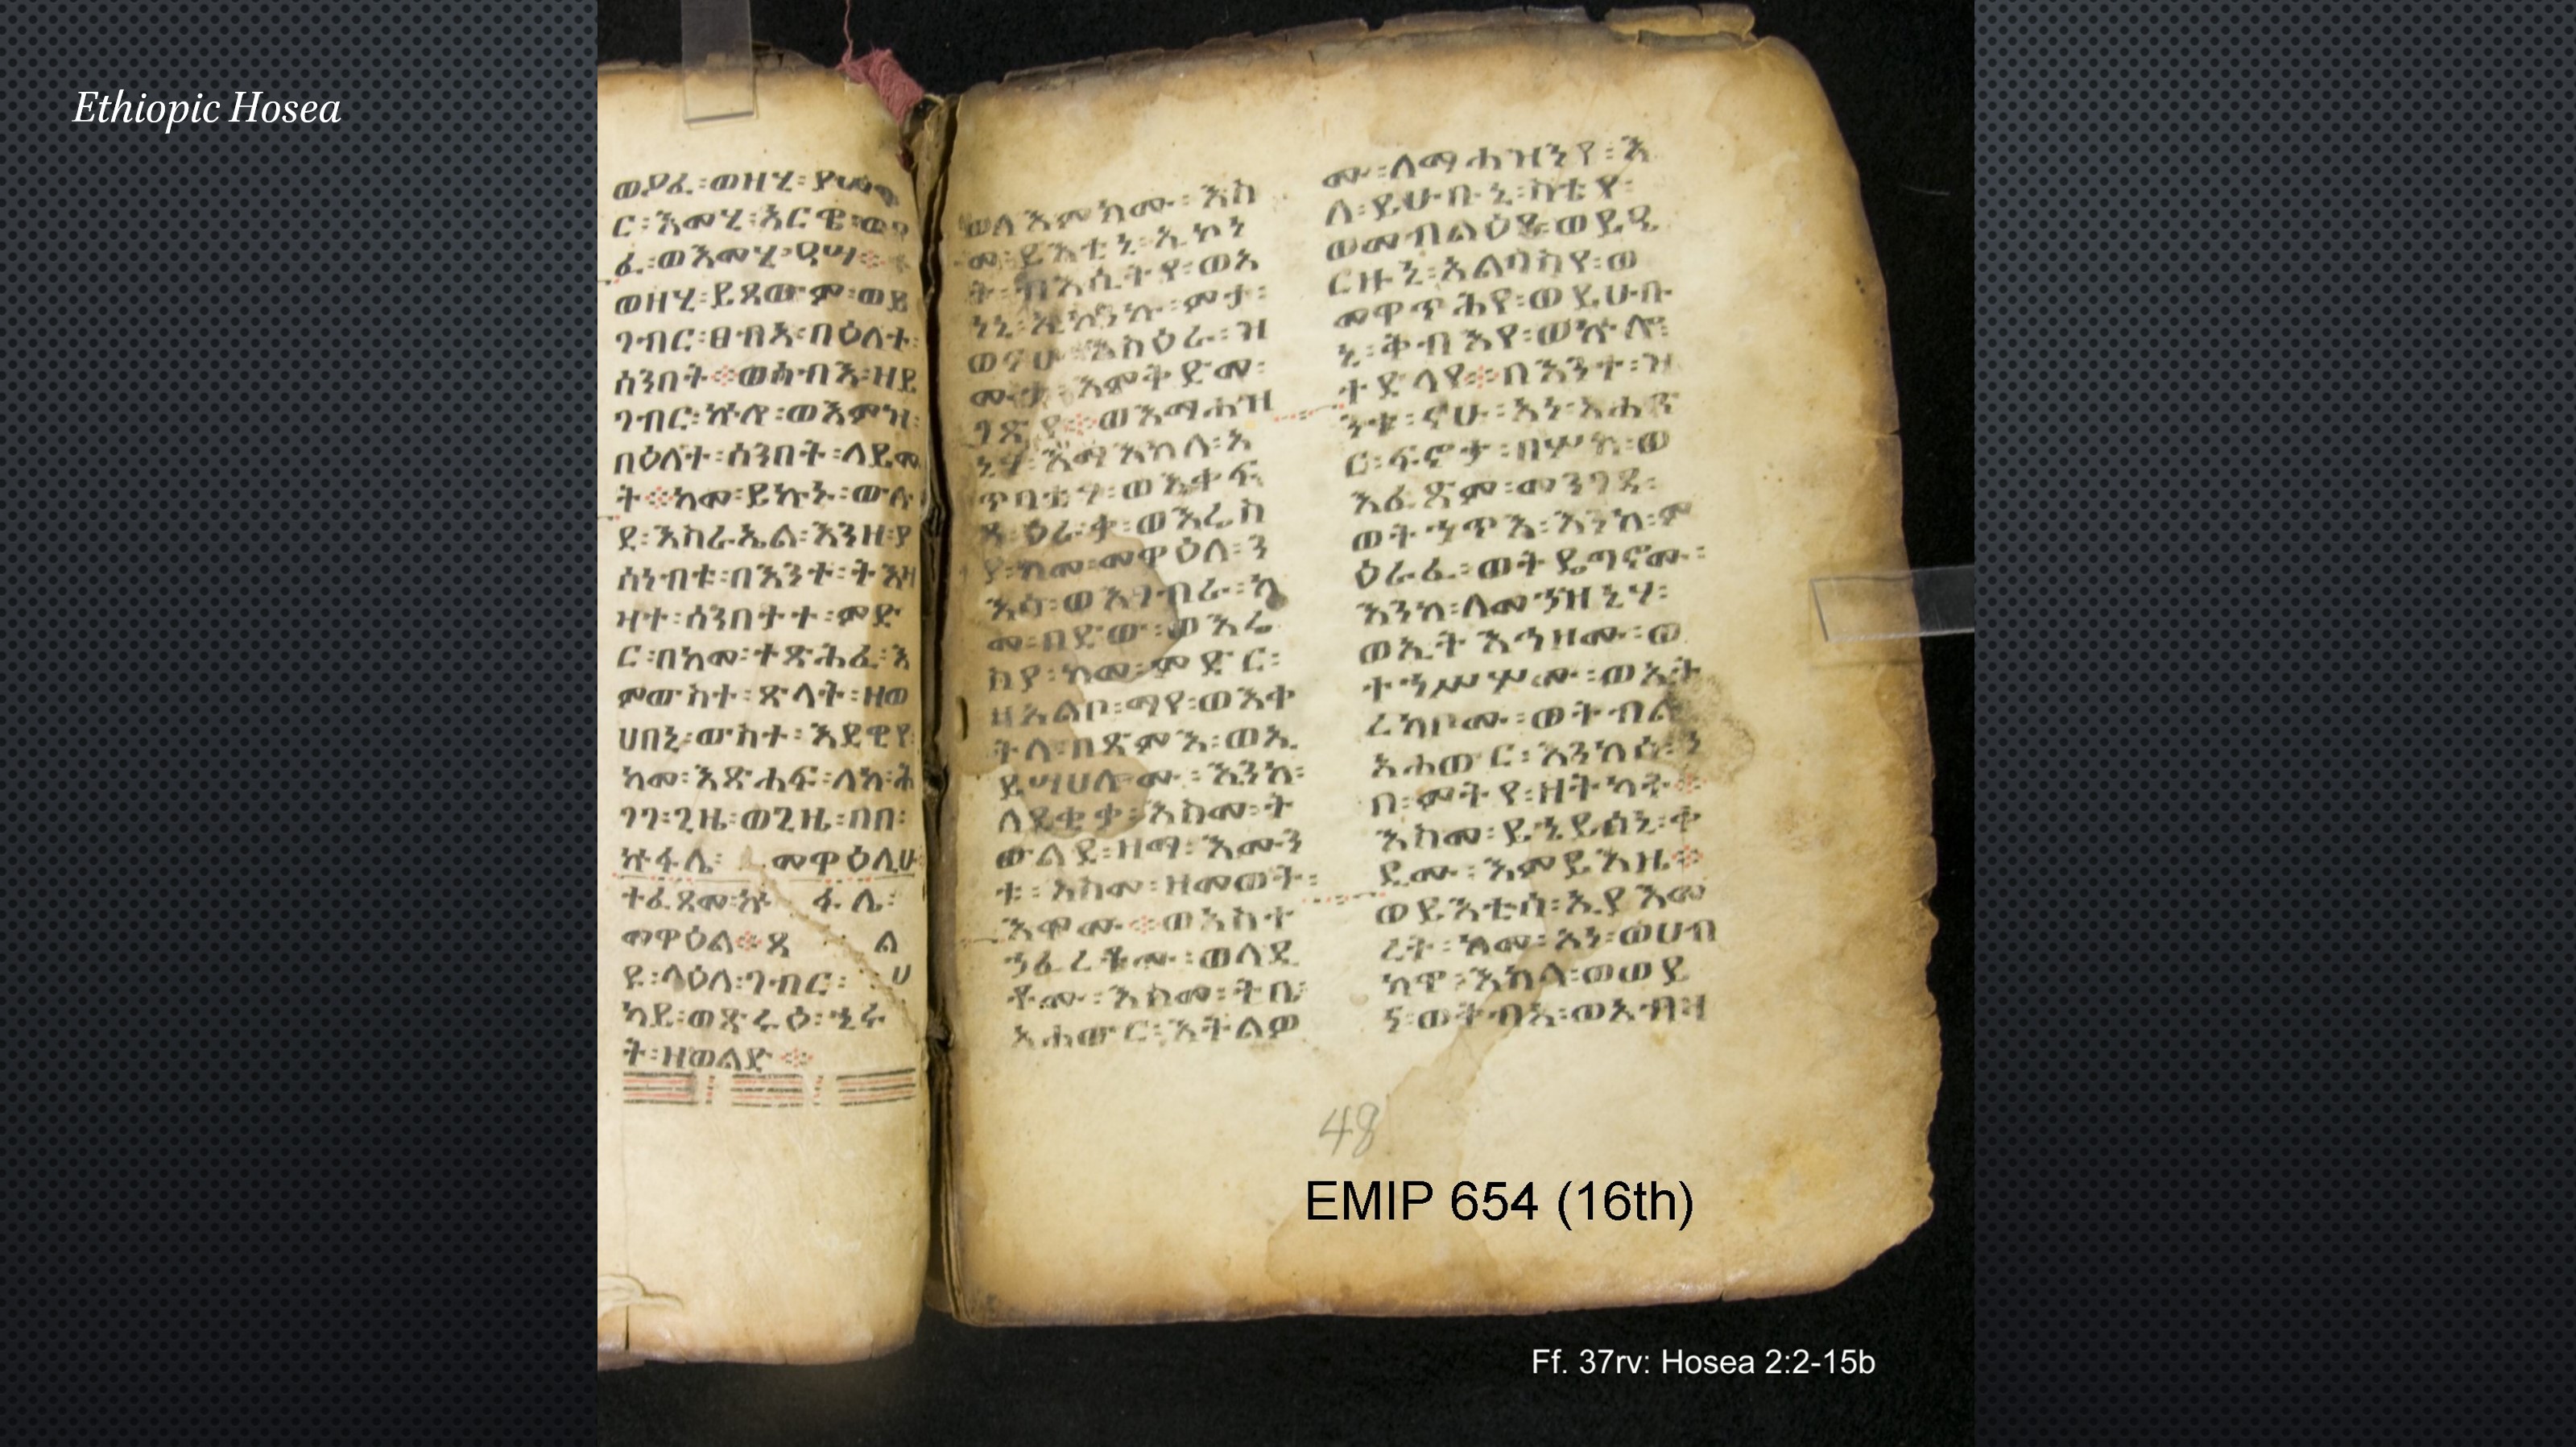 Ethiopic Hosea
ር፡እመሂ፡አርዌ፡
ፈ፡ወእመሂ፡ዲሣ፨
ወዘሂ፡ይጻውም፡ወይ
ገብር፡ፀብአ፡በዕለተ፡
ሰንበት፨ወሓብእ፡ዘይ
ገብር፡ኵሎ፡ወእምዝ፡
በዕለተ፡ሰንበት፡ለይመ
ት፨ከመ፡ይኩኑ፡ውሉ
ደ፡እስራኤል፡እንዘ፡ያ
ሰነብቱ፡በእንተ፡ትእዛ
ዛተ፡ሰንበታተ፡ምድ
ር፡በከመ፡ተጽሕፈ፡እ
ምውስተ፡ጽላት፡ዘወ
ሀበኒ፡ውስተ፡እደዊየ፡
ከመ፡እጽሐፍ፡ለከ፡ሕ
ገገ፡ጊዜ፡ወጊዜ፡በበ፡
ኩፋሌ፡ መዋዕሊሁ፡
ተፈጸመ፡ኩ ፋሌ፡
መዋዕል፨ጸ ል
ዩ፡ላዕለ፡ገብር፡ ሀ
ት፡ዘወልድ፨
ወለእምክሙ፡እስ
መ፡ይእቲኒ፡ኢኮነ
ት፡ብእሲትየ፡ወአ
ነኒ፡ኢኮንኩ፡ምታ፡
ወናሁ፡አሰዕራ፡ዝ
ሙታ፡እምቅድመ፡
ገጽየ፨ወእማሐዝ
ኒሃ፡እማእከለ፡አ
ጥባቲሃ፡ወእቀፍ
ጻ፡ዕራቃ፡ወእሬስ
ያ፡ከመ፡መዋዕለ፡ን
እሳ፡ወእገብራ፡ከ
መ፡በድው፡ወእሬ
ስያ፡ከመ፡ምድር፡
ዘአልቦ፡ማየ፡ወእቀ
ትላ፡በጽምእ፡ወኢ
ይሣሀሎሙ፡እንከ፡
ለደቂቃ፡እስመ፡ት
ውልደ፡ዘማ፡እሙን
ቱ፡እስመ፡ዘመወት፡
እሞሙ፨ወአስተ
ኀፈረቶሙ፡ወላዲ
ቶሙ፡እስመ፡ትቤ፡
አሐውር፡እትልዎ
ሙ፡ለማሐዝንየ፡እ
ለ፡ይሁቡኒ፡ስቴየ፡
ወመብልዕየ፡ወይዲ
ርዙኒ፡አልባስየ፡ወ
መዋጥሕየ፡ወይሁቡ
ኒ፡ቅብእየ፡ወኵሎ፡
ተድላየ፨በእንተ፡ዝ
ንቱ፡ናሁ፡አነ፡አሐጽ
ር፡ፍኖታ፡በሦክ፡ወ
እፈጽም፡መንገዳ፡
ወትኀጥእ፡እንከ፡ም
ዕራፈ፡ወትዴግኖሙ፡
እንከ፡ለመኀዝኒሃ፡
ወኢትእኅዘሙ፡ወ
ተኀሥሦሙ፡ወኢት
ረክቦሙ፡ወትብል
አሐውር፡እንከሰ፡ኀ
በ፡ምትየ፡ዘትካት፨
እስመ፡ይኄይሰኒ፡ቀ
ዲሙ፡እምይእዜ፨
ወይእቲሰ፡ኢያእመ
ረት፡ከመ፡አነ፡ወሀብ
ክዋ፡እክለ፡ወወይ
ነ፡ወቅብአ፡ወአብዛ
48
EMIP 654 (16th)
Ff. 37rv: Hosea 2:2-15b